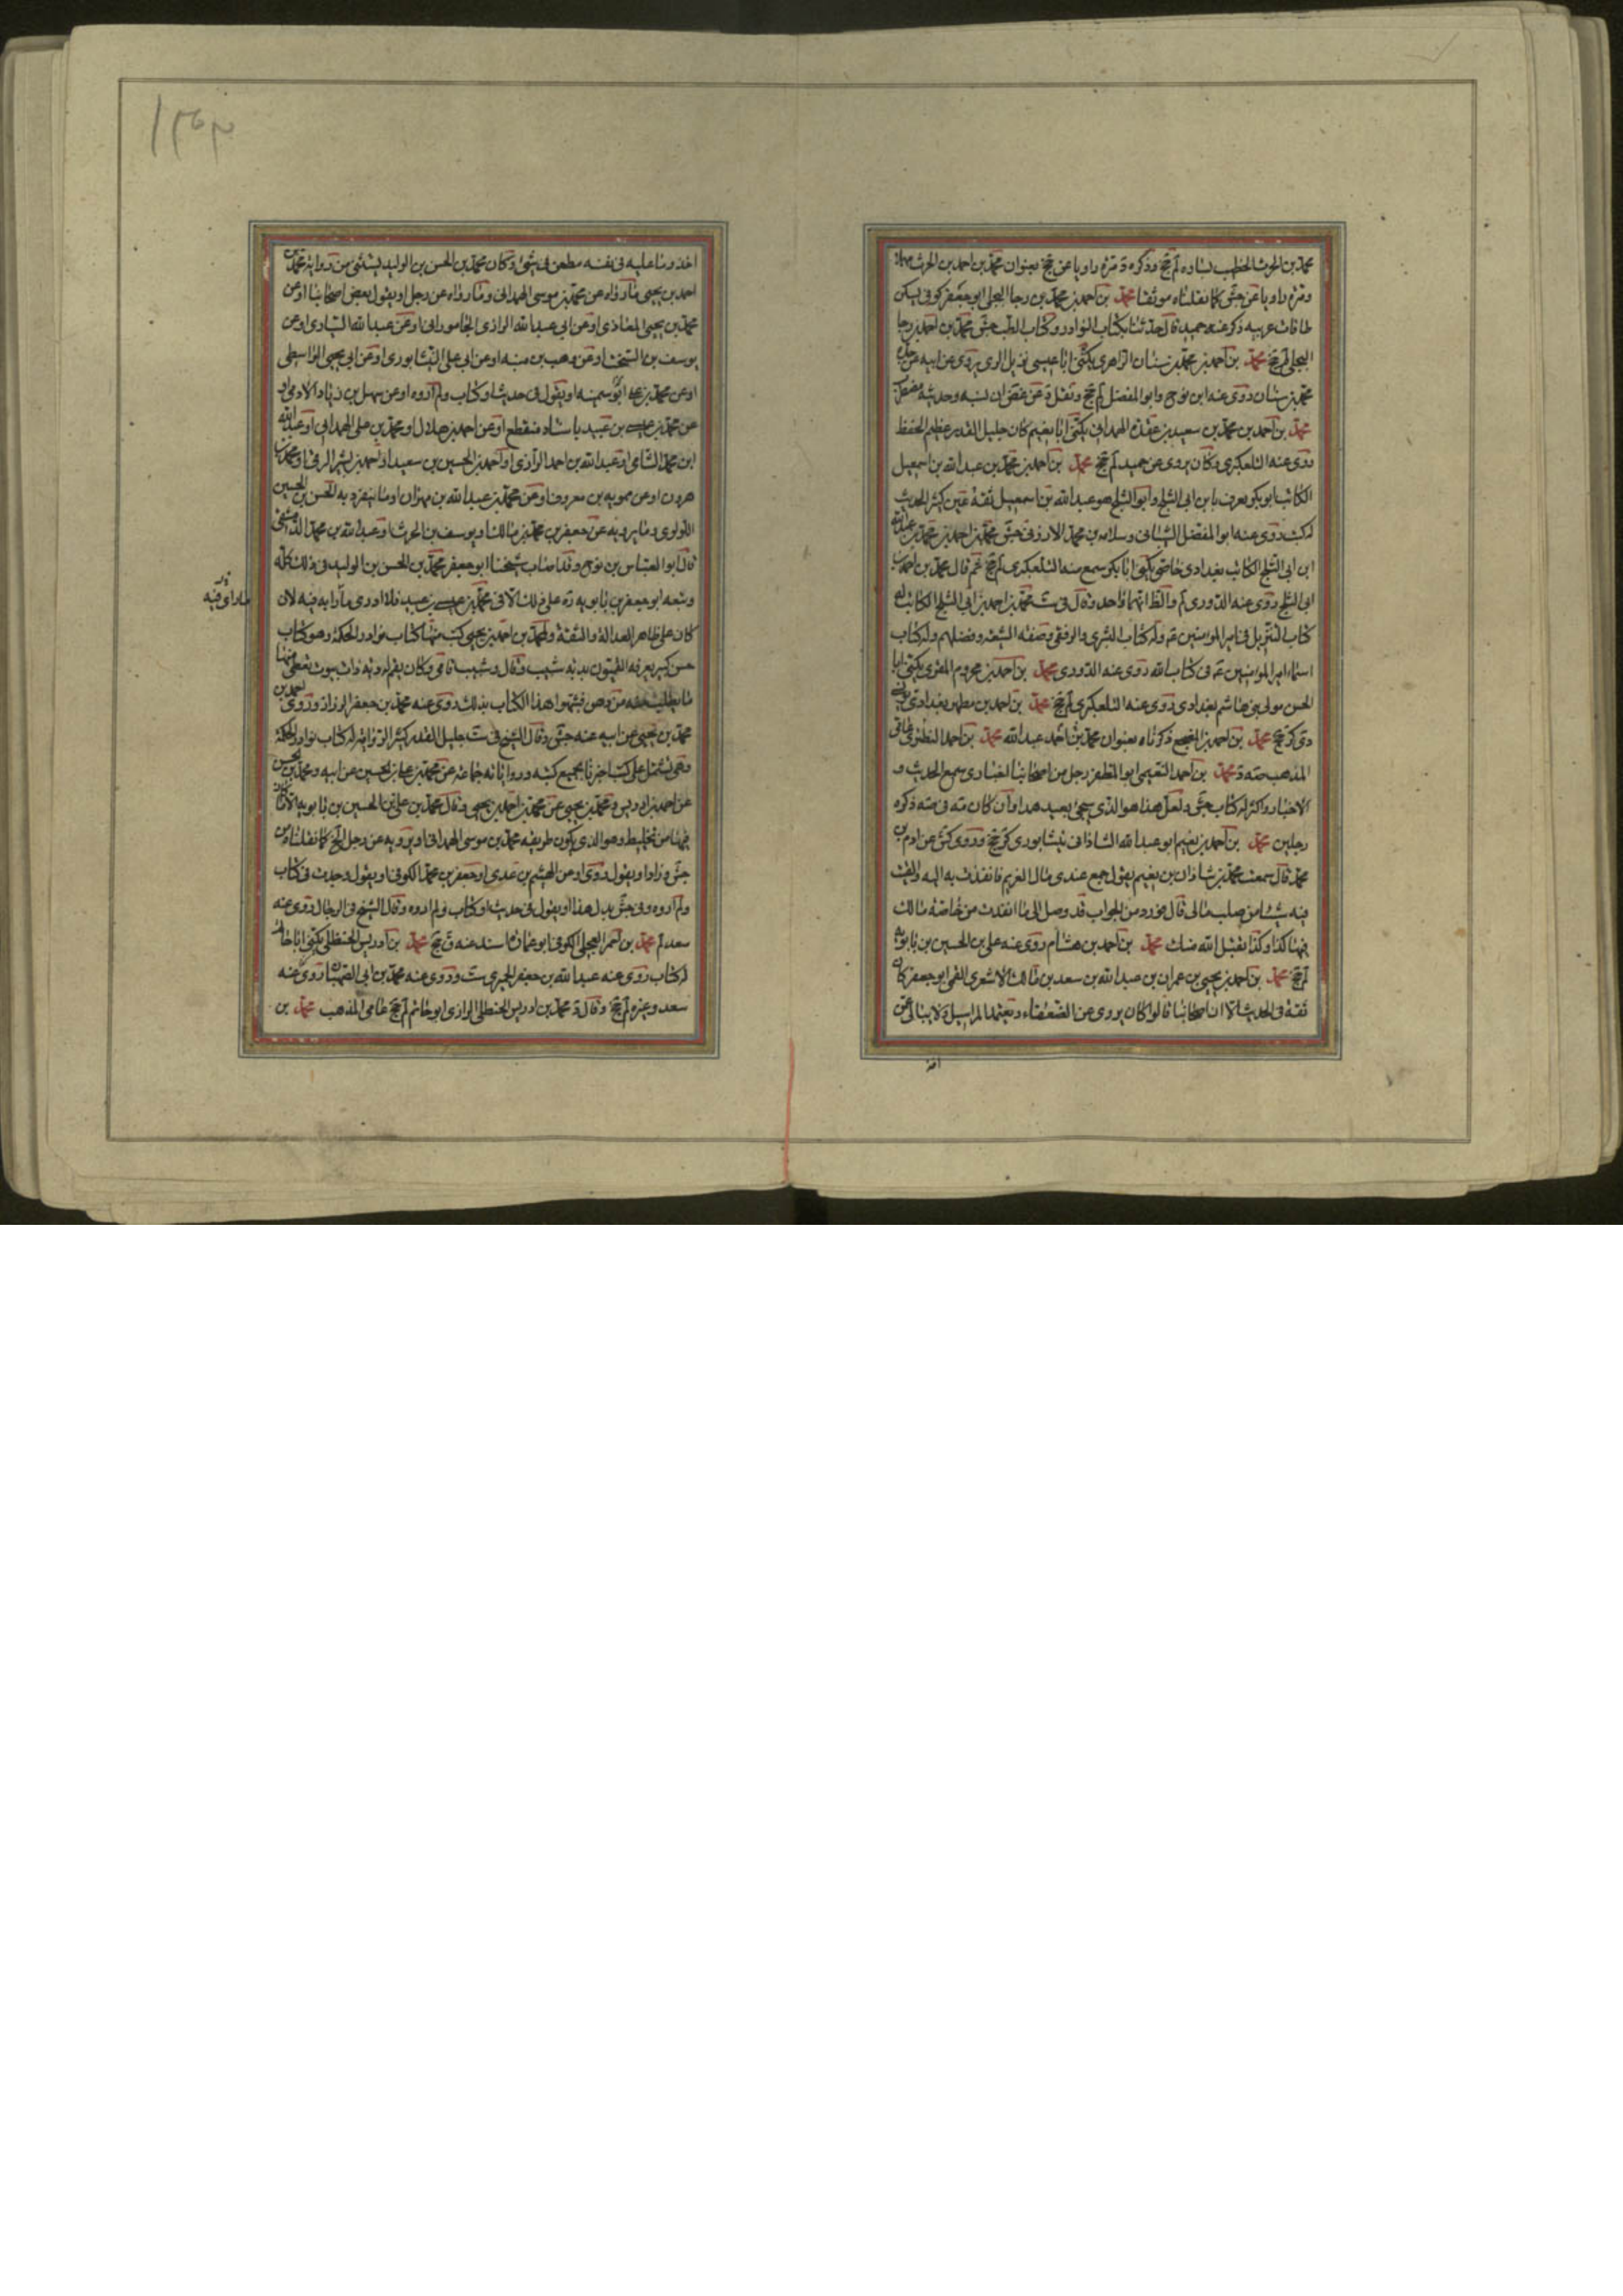 محمد بن الحرث الخطيب بساوه لم جخ وذكره ومره راويا عن جخ بعنوان محمد بن احمد بن الحرث
ومره راويا عن جش كما نقلناه موثقا محمد بن احمد بن محمد بن رجا البجلي ابو جعفر كوفي يسكن
طاقات عرينه ذكر عنه حميد قال حدثنا بكتاب النوادر وكتاب الطب جش محمد بن احمد بن رجا
البجلي لم جخ محمد بن احمد بن محمد بن سنان الزاهري يكنى ابا عيسى نزيل الري يروي عن ابيه عن جده
محمد بن سنان روى عنه ابن نوح وابو المفضل لم جخ ونقل عن غض ان نسبه وحديثه مضطرب
محمد بن احمد بن محمد بن سعيد بن عقدة الهمداني يكنى ابا نعيم كان جليل القدر عظيم الحفظ
روى عنه التلعكبري وكان يروي عن حميد لم جخ محمد بن احمد بن محمد بن عبد الله بن اسمعيل
الكاتب ابو بكر يعرف بابن ابي الثلج وابو الثلج هو عبد الله بن اسمعيل ثقة عين كثير الحديث
له كتب روى عنه ابو المفضل الشيباني وسلامه بن محمد الارزني جش محمد بن احمد بن محمد بن عبد الله
ابن ابي الثلج الكاتب بغدادي خاصي يكنى ابا بكر سمع منه التلعكبري لم جخ ثم قال محمد بن احمد بن
ابي الثلج روى عنه الدوري لم والظ انهما واحد وقال في ست محمد بن احمد بن ابي الثلج الكاتب له
كتاب التنزيل في امير المؤمنين عم وله كتاب البشرى والزلفى وصفة الشيعه وفضلهم وله كتاب
اسماء امير المؤمنين عم في كتاب الله روى عنه الدوري محمد بن احمد بن مخزوم المقري يكنى ابا
الحسن مولى بني هاشم بغدادي روى عنه التلعكبري لم جخ محمد بن احمد بن مطهر بغدادي
دي كر جخ محمد بن احمد بن المفجع ذكرناه بعنوان محمد بن احمد عبد الله محمد بن احمد النطنزي عامي
المذهب مه محمد بن احمد النعيمي ابو المظفر رجل من اصحابنا الغبادى سمع الحديث و
الاخبار واكثر له كتاب جش ولعل هذا هو الذي يجئ بعيد هذا وان كان مه في مه ذكره
رجلين محمد بن احمد بن نعيم ابو عبد الله الشاذاني نيشابوري كر جخ وروى كش عن ادم بن
محمد قال سمعت محمد بن شاذان بن نعيم يقول جمع عندي مال الغريم فانفذت به اليه والقيت
فيه شيئا من صلب مالي قال فورد من الجواب قد وصل الى ما انفذت من خاصة مالك
فيها كذا وكذا تقبل الله منك محمد بن احمد بن هشام روى عنه علي بن الحسين بن بابويه
لم جخ محمد بن احمد بن يحيى بن عمران بن عبد الله بن سعد بن مالك الاشعري القمي ابو جعفر كان
ثقة في الحديث الا ان اصحابنا قالوا كان يروي عن الضعفاء ويعتمد المراسيل ولا يبالي عمن
اخذ وما عليه في نفسه مطعن في شئ وكان محمد بن الحسن بن الوليد يستثني من رواية محمد بن
احمد بن يحيى ما رواه عن محمد بن موسى الهمداني وما رواه عن رجل او يقول بعض اصحابنا او عن
محمد بن يحيى المعاذي او عن ابي عبد الله الرازي الجاموراني او عن عبد الله السياري او عن
يوسف بن السخت او عن وهب بن منبه او عن ابي علي النيشابوري او عن ابي يحيى الواسطي
او عن محمد بن علي ابو سمينه او يقول في حديث او كتاب ولم اروه او عن سهل بن زياد الادمي او
عن محمد بن عيسى بن عبيد باسناد منقطع او عن احمد بن هلال او محمد بن علي الهمداني او عبد الله
ابن محمد الشامي او عبد الله بن احمد الرازي او احمد بن الحسين بن سعيد او احمد بن بشير الرقي او محمد بن
هرون او عن ممويه بن معروف او عن محمد بن عبد الله بن مهران او ما ينفرد به الحسن بن الحسين
اللؤلؤي وما يرويه عن جعفر بن محمد بن مالك او يوسف بن الحرث او عبد الله بن محمد الدمشقي
قال ابو العباس بن نوح وقد اصاب شيخنا ابو جعفر محمد بن الحسن بن الوليد في ذلك كله
وتبعه ابو جعفر بن بابويه ره على ذلك الا في محمد بن عيسى بن عبيد فلا ادري ما رابه فيه لان
كان على ظاهر العدالة والثقة ولمحمد بن احمد بن يحيى كتب منها كتاب نوادر الحكمة وهو كتاب
حسن كبير يعرفه القميون بدبة شبيب وقال وشبيب فامي وكان بقم له دبة ذات بيوت يعطي منها
ما يطلب منه من دهن فشبهوا هذا الكتاب بذلك روى عنه محمد بن جعفر الرزاز وروى احمد بن
محمد بن يحيى عن ابيه عنه جش وقال الشيخ في ست جليل القدر كثير الرواية له كتاب نوادر الحكمة
وهي تشتمل على كتب اخبرنا بجميع كتبه ورواياته جماعة عن محمد بن علي بن الحسين عن ابيه ومحمد بن الحسن
عن احمد بن ادريس ومحمد بن يحيى عن محمد بن احمد بن يحيى وقال محمد بن علي بن الحسين بن بابويه الا ما كان
فيها من تخليط وهو الذي يكون طريقه محمد بن موسى الهمداني او يرويه عن رجل الخ كما نقلناه من
جش وزاد او يقول روى او عن الهيثم بن عدي او جعفر بن محمد الكوفي او يقول وجدت في كتاب
ولم اروه وفي جش بدل هذا او يقول في حديث او كتاب ولم اروه وقال الشيخ في الرجال روى عنه
سعد لم محمد بن احمر العجلي الكوفي ابو عماره اسند عنه ق جخ محمد بن ادريس الحنظلي يكنى ابا حاتم
له كتاب روى عنه عبد الله بن جعفر الحميري ست وروى عنه محمد بن ابي الصهبان روى عنه
سعد وغيره لم جخ وقال د محمد بن ادريس الحنظلي الرازي ابو حاتم لم جخ عامي المذهب محمد بن